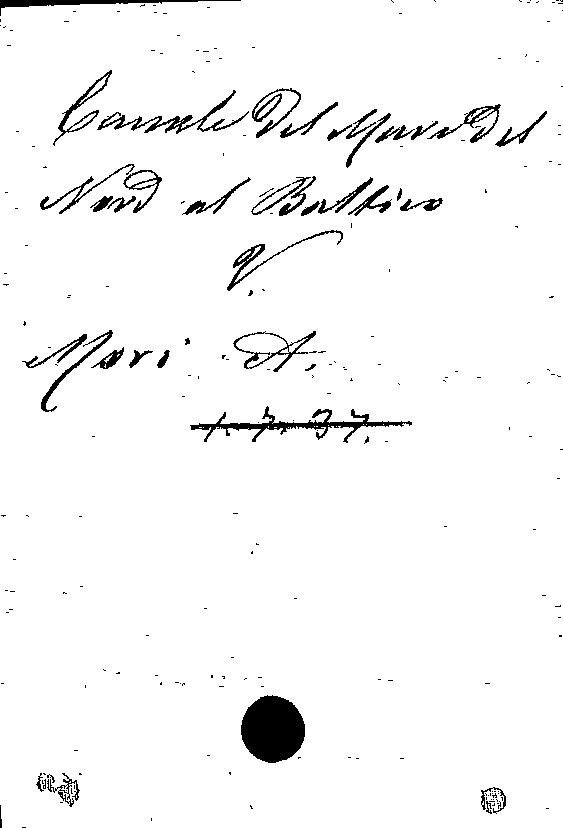 Canale Del Mare Del
Nord al Baltico
V.
Mori A.
1. 7. 37.